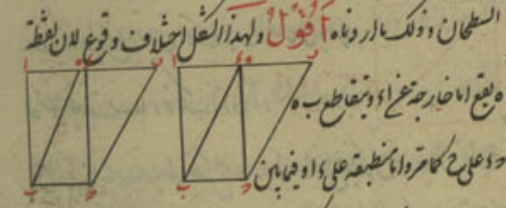 السطحان وذلك ما اردناه اقول ولهذا الشكل اختلاف وقوع لان نقطة
ه يقع اما خارجة عن ا ء و يتقاطع ب ه
د ء على ح كما مر واما منطبقة على ء او فيما بين